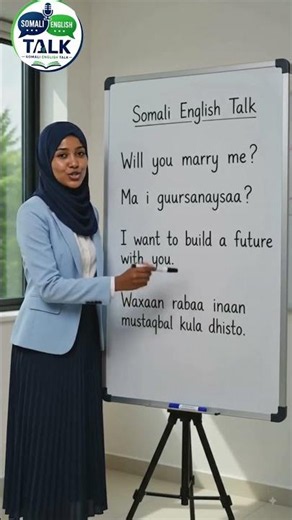 SOMALI ENGLISH
TALK
SOMALI ENGLISH TALK
Somali English Talk
Will you marry me?
Ma i guursanaysaa?
I want to build a future
with you.
Waxaan rabaa inaan
mustaqbal kula dhisto.